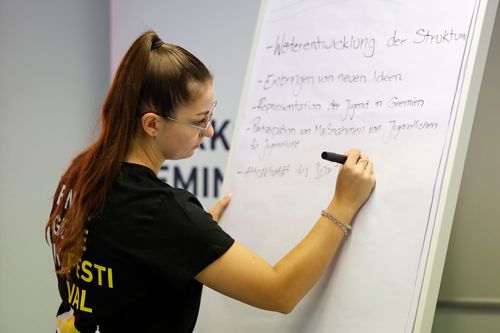 - Weiterentwicklung der Struktur
- Einbringen von neuen Ideen
- Representation der Jugend in Gremien
- Partizipation von Maßnahmen von Jugendlichen
für Jugendliche
- Attraktivität des
RK
EMIN
ESTI
VAL